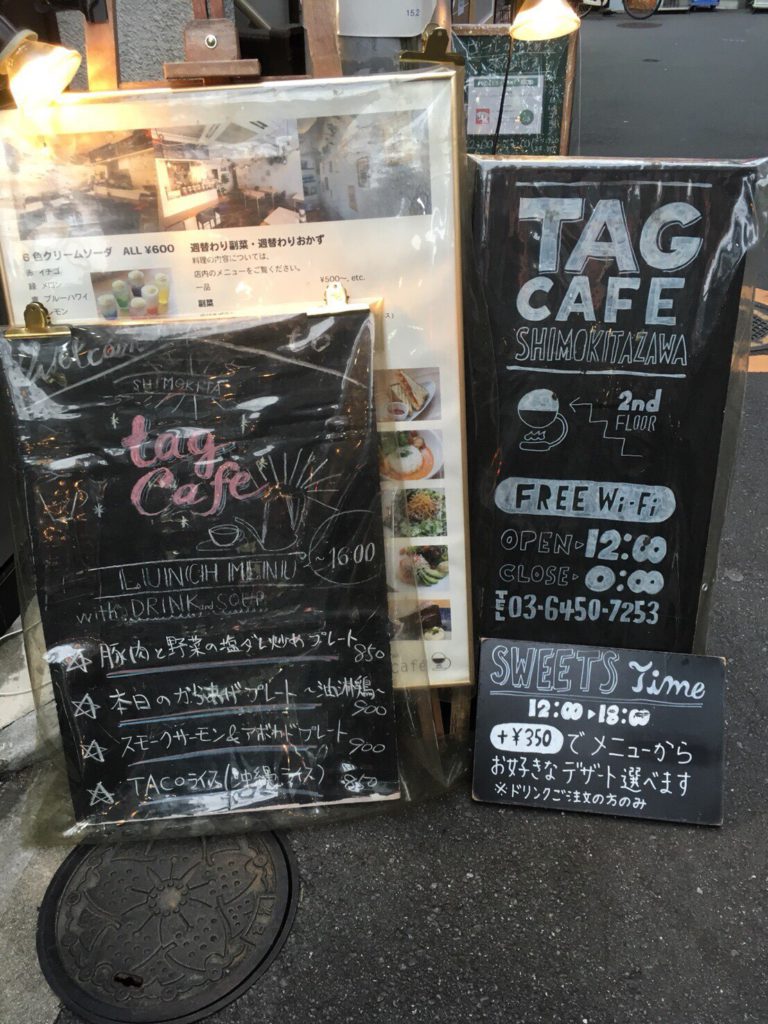 152
6色クリームソーダ ALL ¥600
赤 イチゴ
緑 メロン
青 ブルーハワイ
週替わり副菜・週替わりおかず
料理の内容については、
店内のメニューをご覧ください。
一品 ¥500〜, etc.
副菜
cafe
Welcome to
SHIMOKITA
tag
Cafe
LUNCH MENU
〜16:00
with DRINK and SOUP
☆ 豚肉と野菜の塩ダレ炒めプレート 850
☆ 本日のからあげプレート〜油淋鶏〜 900
☆ スモークサーモン&アボカドプレート 900
☆ TACOライス(沖縄ライス) 850
TAG
CAFE
SHIMOKITAZAWA
2nd
FLOOR
FREE Wi-Fi
OPEN▷12:00
CLOSE▷0:00
TEL 03-6450-7253
SWEETS Time
12:00▶18:00
+¥350でメニューから
お好きなデザート選べます
※ドリンクご注文の方のみ